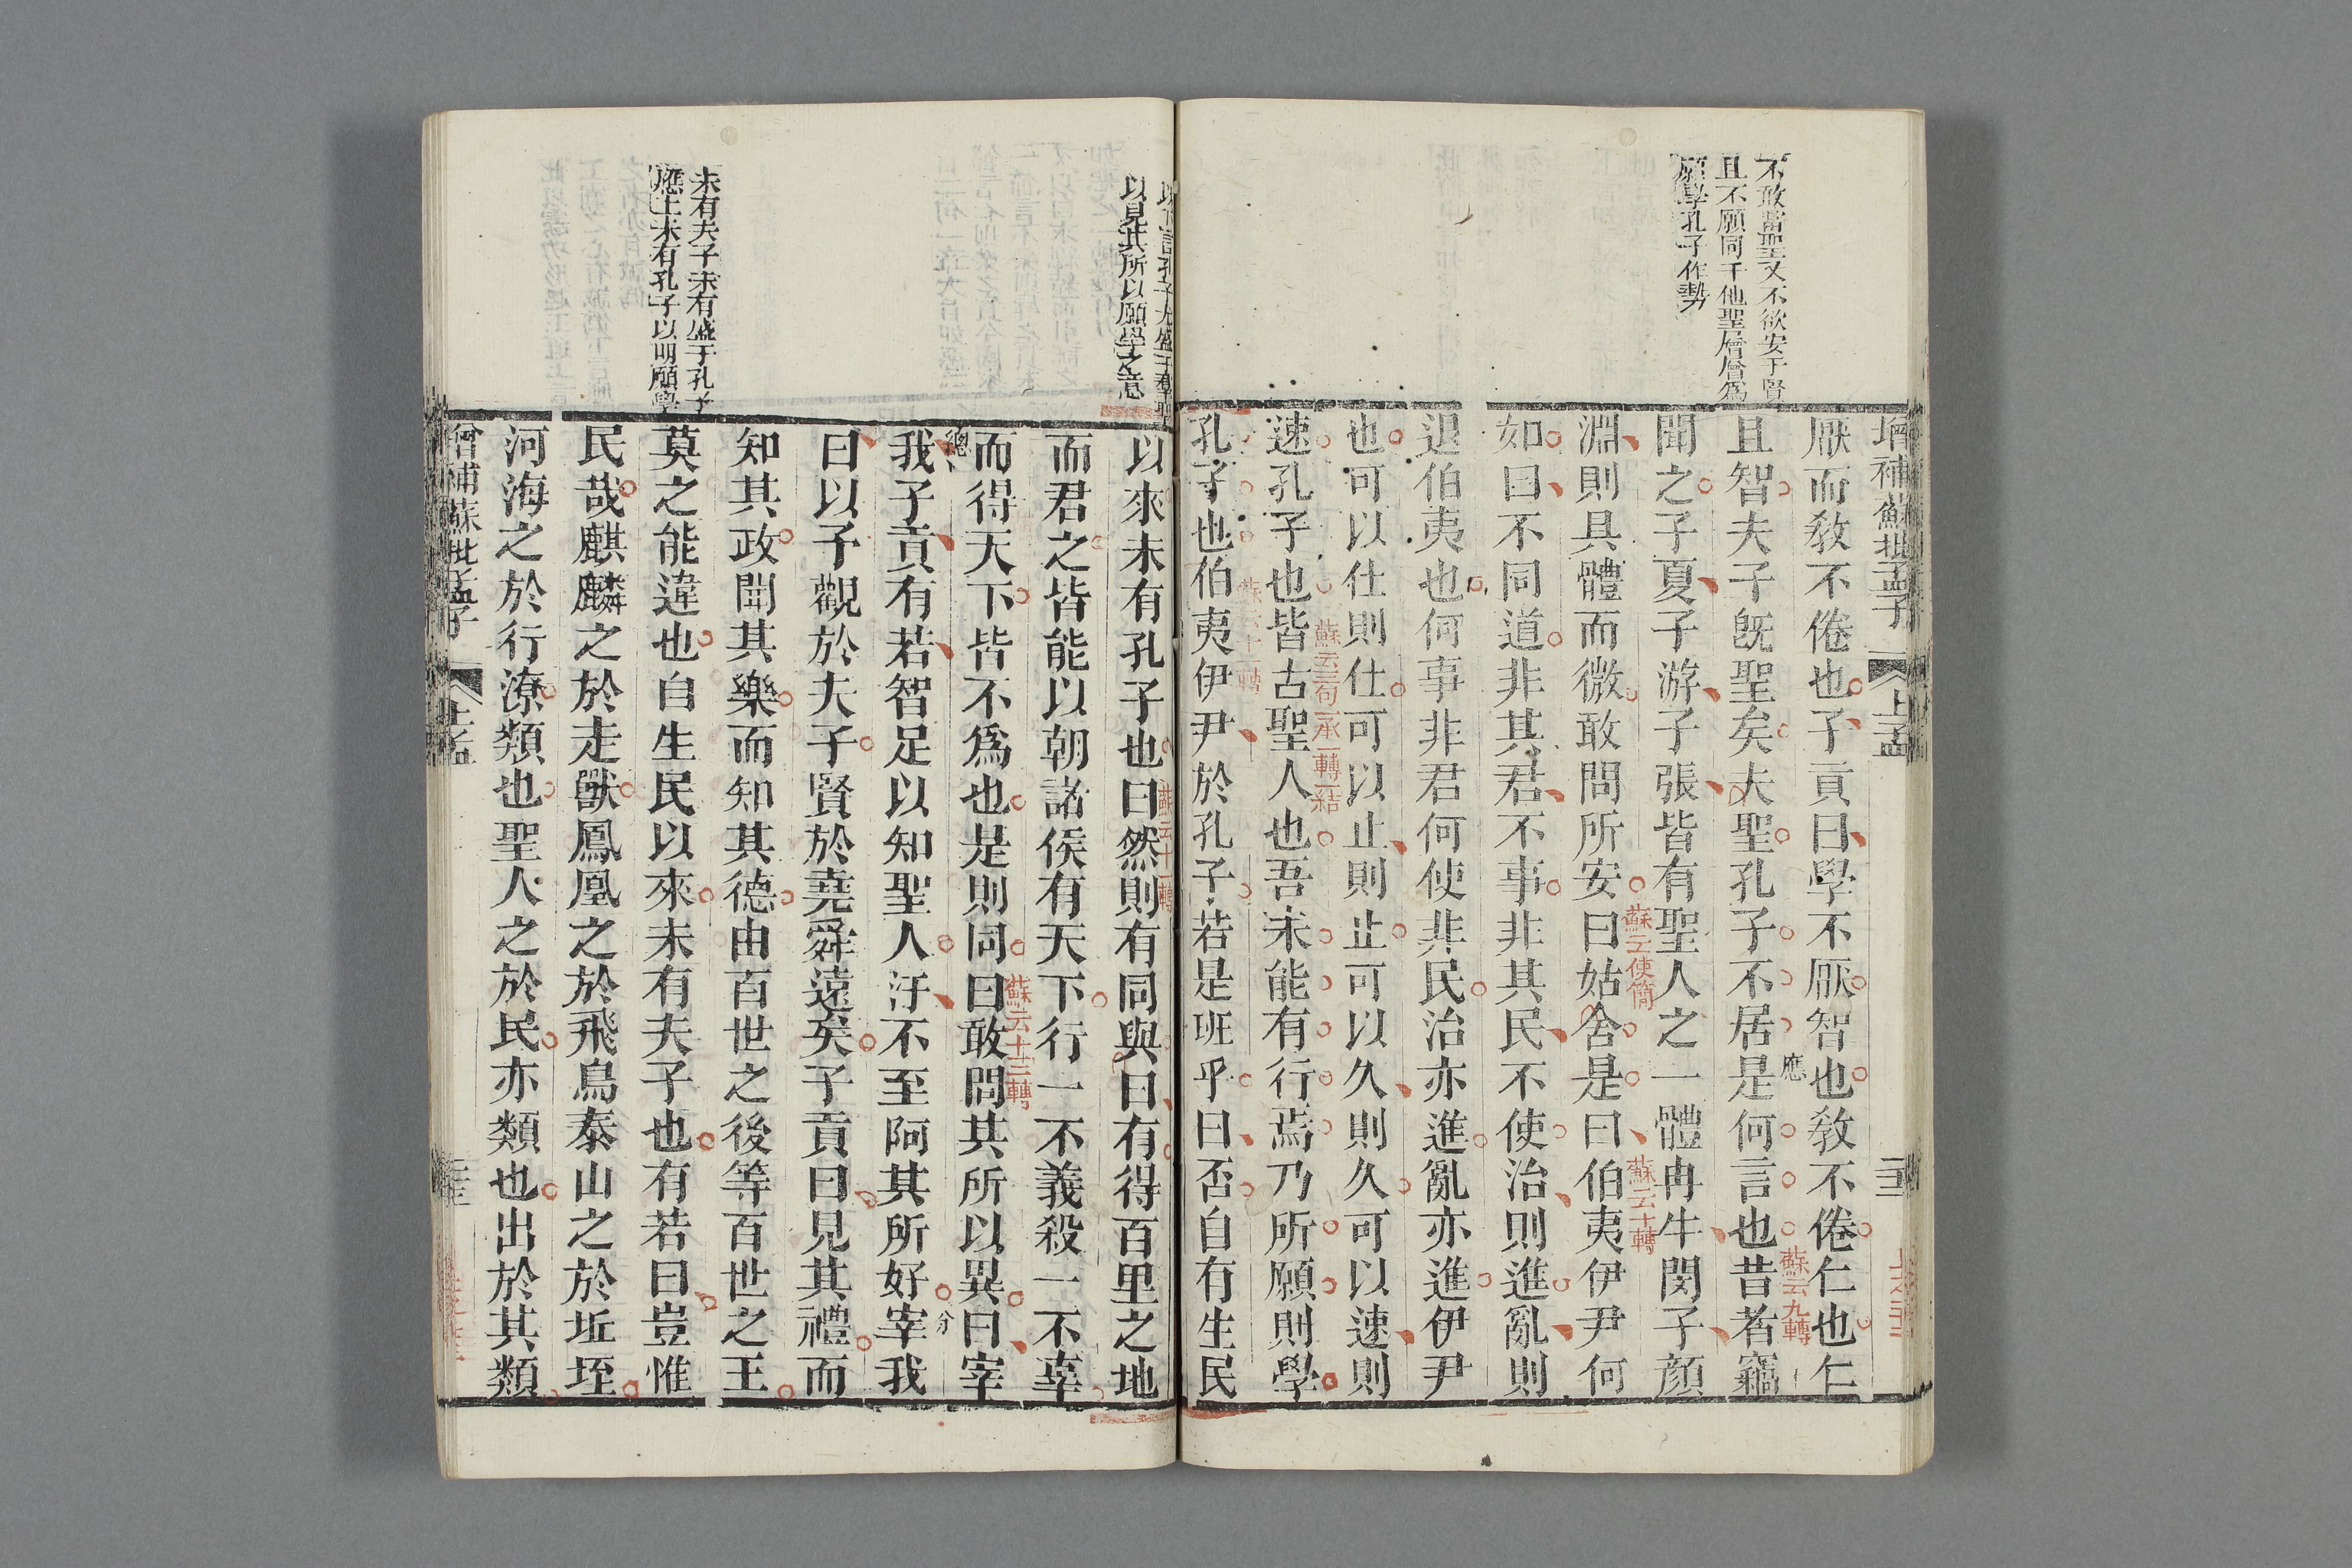 不敢當聖又不欲安于賢
且不願同于他聖層層爲
願學孔子作勢
增補蘇批孟子
上孟
厭而教不倦也子貢曰學不厭智也教不倦仁也仁
應
且智夫子既聖矣夫聖孔子不居是何言也昔者竊
蘇云九轉
聞之子夏子游子張皆有聖人之一體冉牛閔子顏
淵則具體而微敢問所安曰姑舍是曰伯夷伊尹何
蘇云使簡
蘇云十轉
如曰不同道非其君不事非其民不使治則進亂則
退伯夷也何事非君何使非民治亦進亂亦進伊尹
也可以仕則仕可以止則止可以久則久可以速則
速孔子也皆古聖人也吾未能有行焉乃所願則學
蘇云三句一承一轉一結
孔子也伯夷伊尹於孔子若是班乎曰否自有生民
以見其所以願學之意
以來未有孔子也曰然則有同與曰有得百里之地
而君之皆能以朝諸侯有天下行一不義殺一不辜
而得天下皆不爲也是則同曰敢問其所以異曰宰
蘇云十三轉
總
我子貢有若智足以知聖人汙不至阿其所好宰我
分
曰以予觀於夫子賢於堯舜遠矣子貢曰見其禮而
知其政聞其樂而知其德由百世之後等百世之王
未有夫子未有盛于孔子
應上未有孔子以明願學
莫之能違也自生民以來未有夫子也有若曰豈惟
民哉麒麟之於走獸鳳凰之於飛鳥泰山之於垤
河海之於行潦類也聖人之於民亦類也出於其類
增補蘇批孟子
上孟